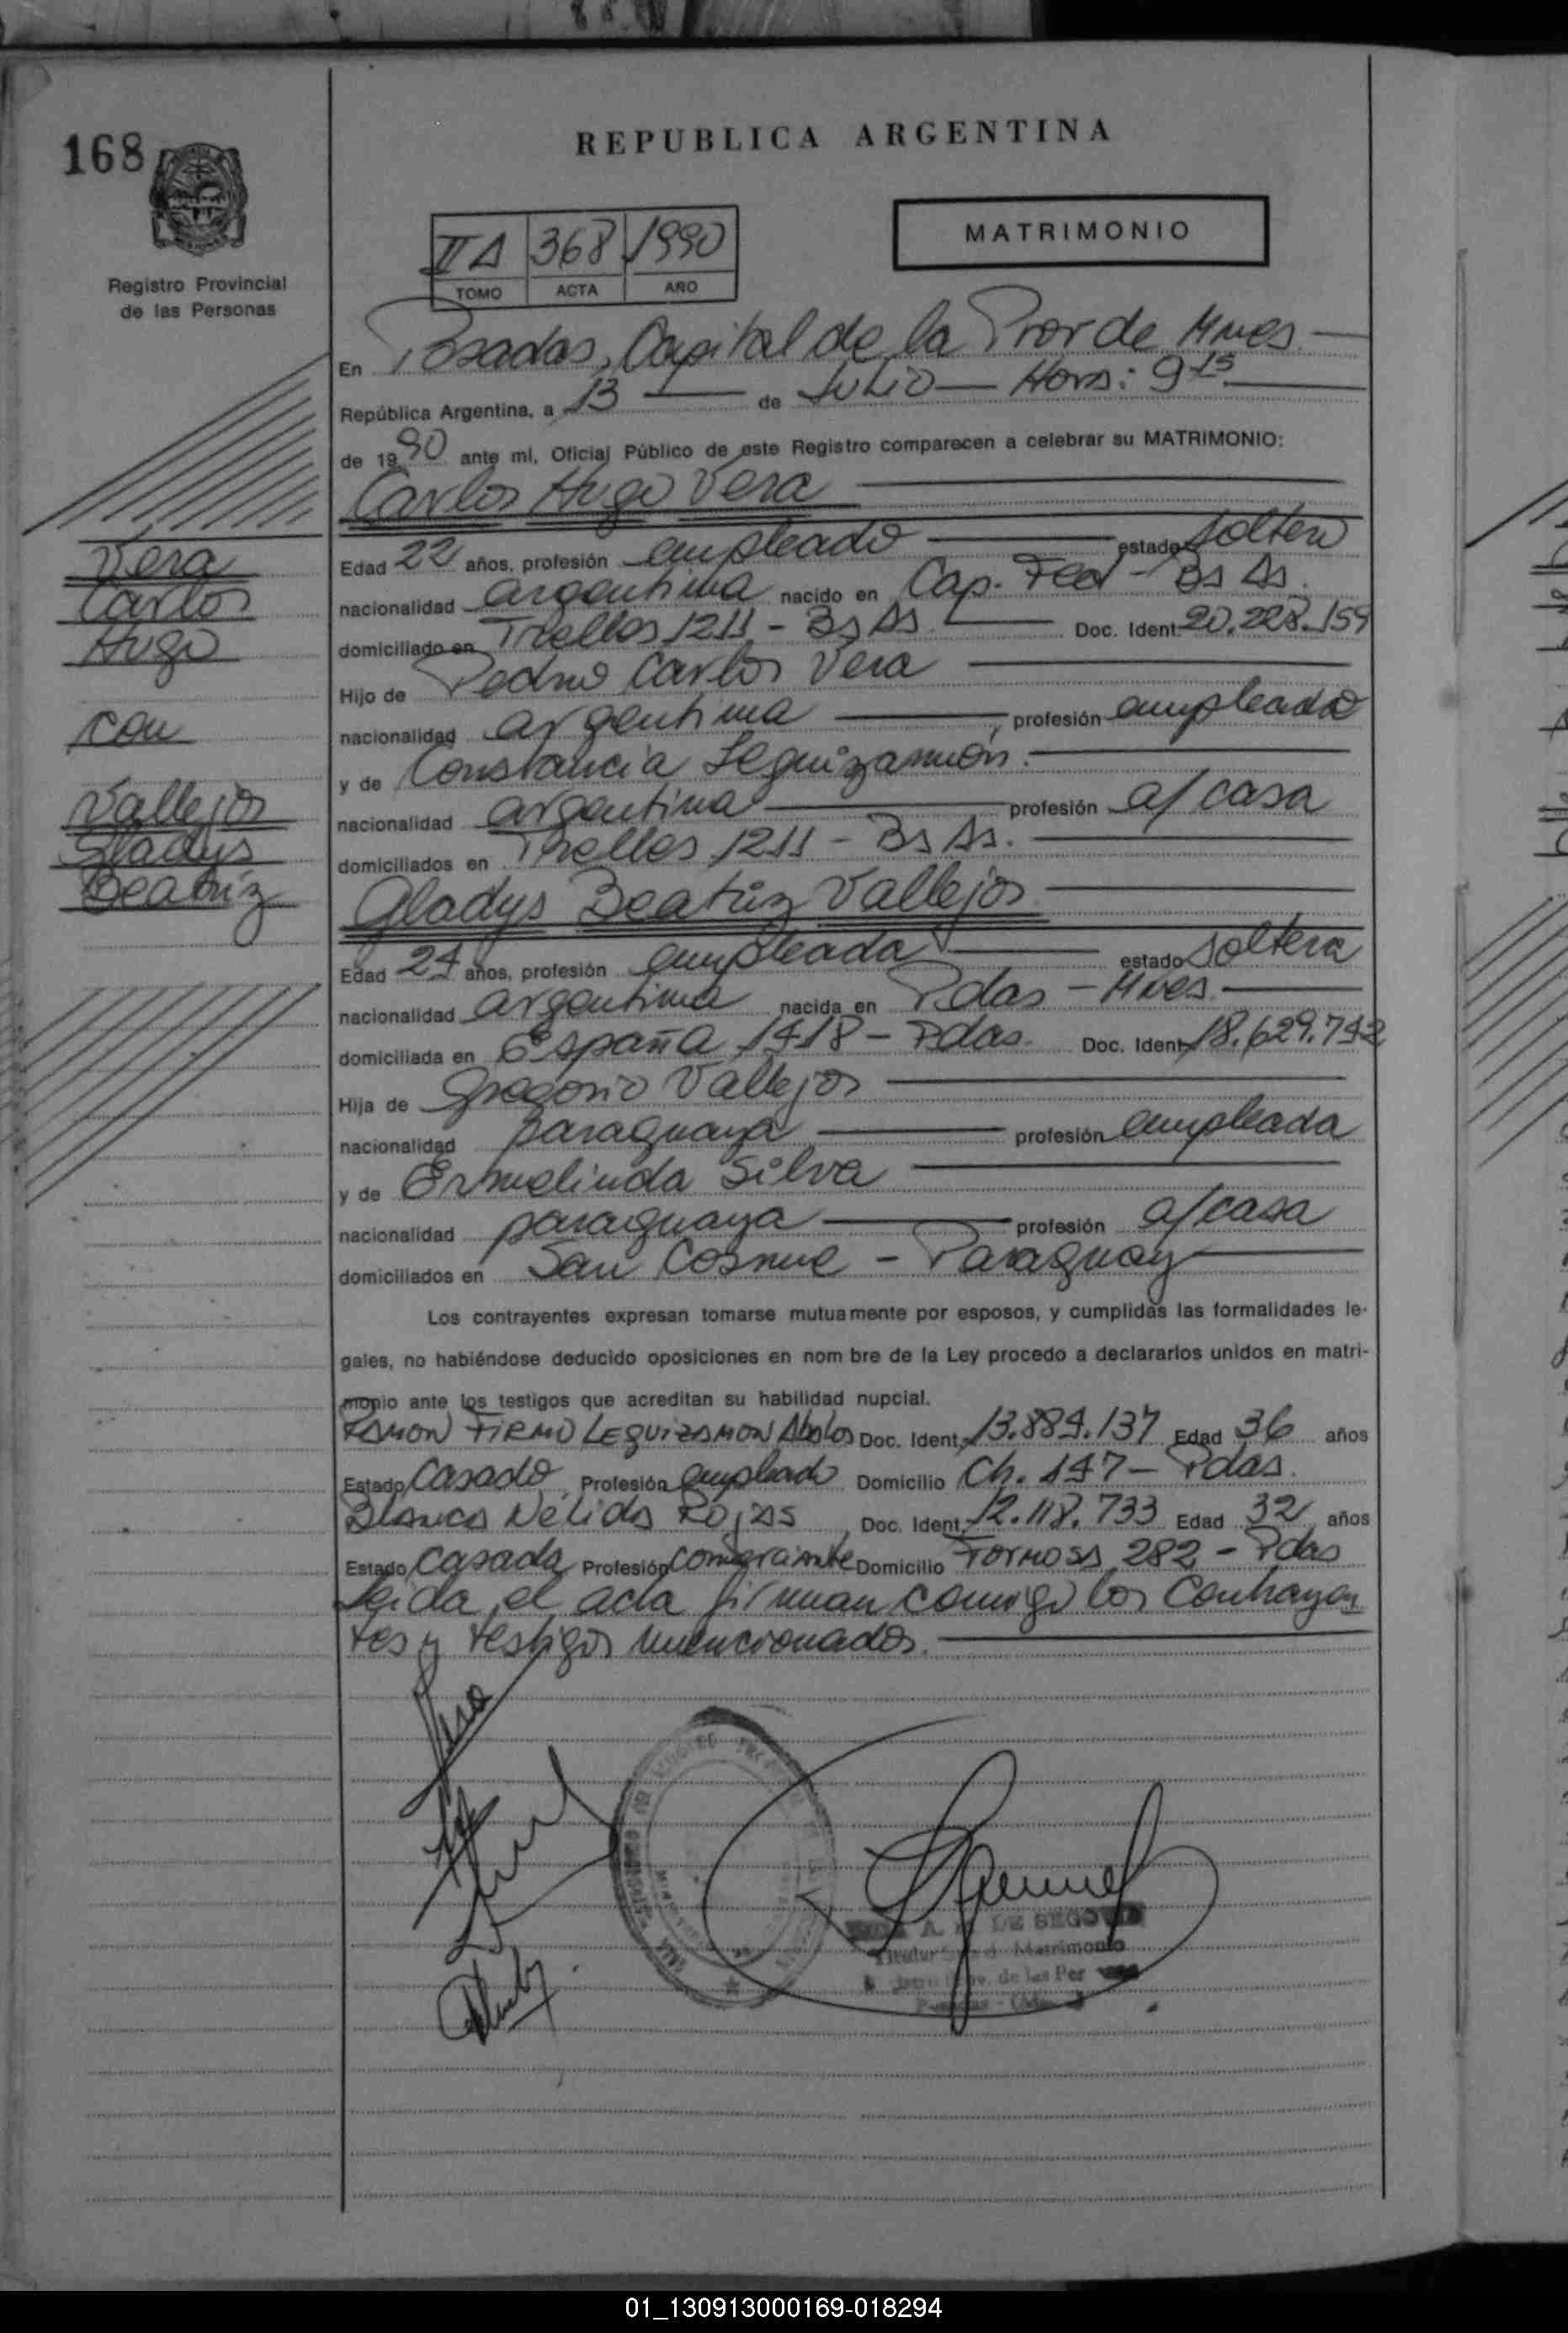 168
REPUBLICA ARGENTINA
Registro Provincial
de las Personas
II A 368 1990
TOMO ACTA AÑO
MATRIMONIO
En Posadas, Capital de la Prov de Mnes.
República Argentina, a 13 de Julio Hora: 9 15
de 1990 ante mi, Oficial Público de este Registro comparecen a celebrar su MATRIMONIO:
Carlos Hugo Vera
Edad 22 años, profesión empleado estado soltero
nacionalidad argentina nacido en Cap. Fed - Bs As.
domiciliado en Trelles 1211 - Bs As. Doc. Ident. 20.228.159
Hijo de Pedro Carlos Vera
nacionalidad argentina, profesión empleado
y de Constancia Leguizamón.
nacionalidad argentina profesión a/casa
domiciliados en Trelles 1211 - Bs As.
Gladys Beatriz Vallejos
Edad 24 años, profesión empleada estado soltera
nacionalidad argentina nacida en Pdas - Mnes.
domiciliada en España 1418 - Pdas. Doc. Ident. 18.629.742
Hija de Gregorio Vallejos
nacionalidad paraguaya profesión empleada
y de Ermelinda Silva
nacionalidad paraguaya profesión a/casa
domiciliados en San Cosme - Paraguay
Los contrayentes expresan tomarse mutuamente por esposos, y cumplidas las formalidades le-
gales, no habiéndose deducido oposiciones en nom bre de la Ley procedo a declararlos unidos en matri-
monio ante los testigos que acreditan su habilidad nupcial.
RAMON FIRMO LEGUIZAMON Doc. Ident. 13.884.137 Edad 36 años
Estado Casado, Profesión empleado Domicilio Ch. 147 - Pdas.
Blanca Nélida Rojas Doc. Ident. 12.118.733 Edad 32 años
Estado casada Profesión Domicilio Formosa 282 - Pdas
Leida el acta firman comigo los Contrayen
tes y testigos mencionados.
Vera
Carlos
Hugo
con
Vallejos
Gladys
Beatriz
A. DE SEGOVIA
Titular Matrimonio
de las Per
01_130913000169-018294